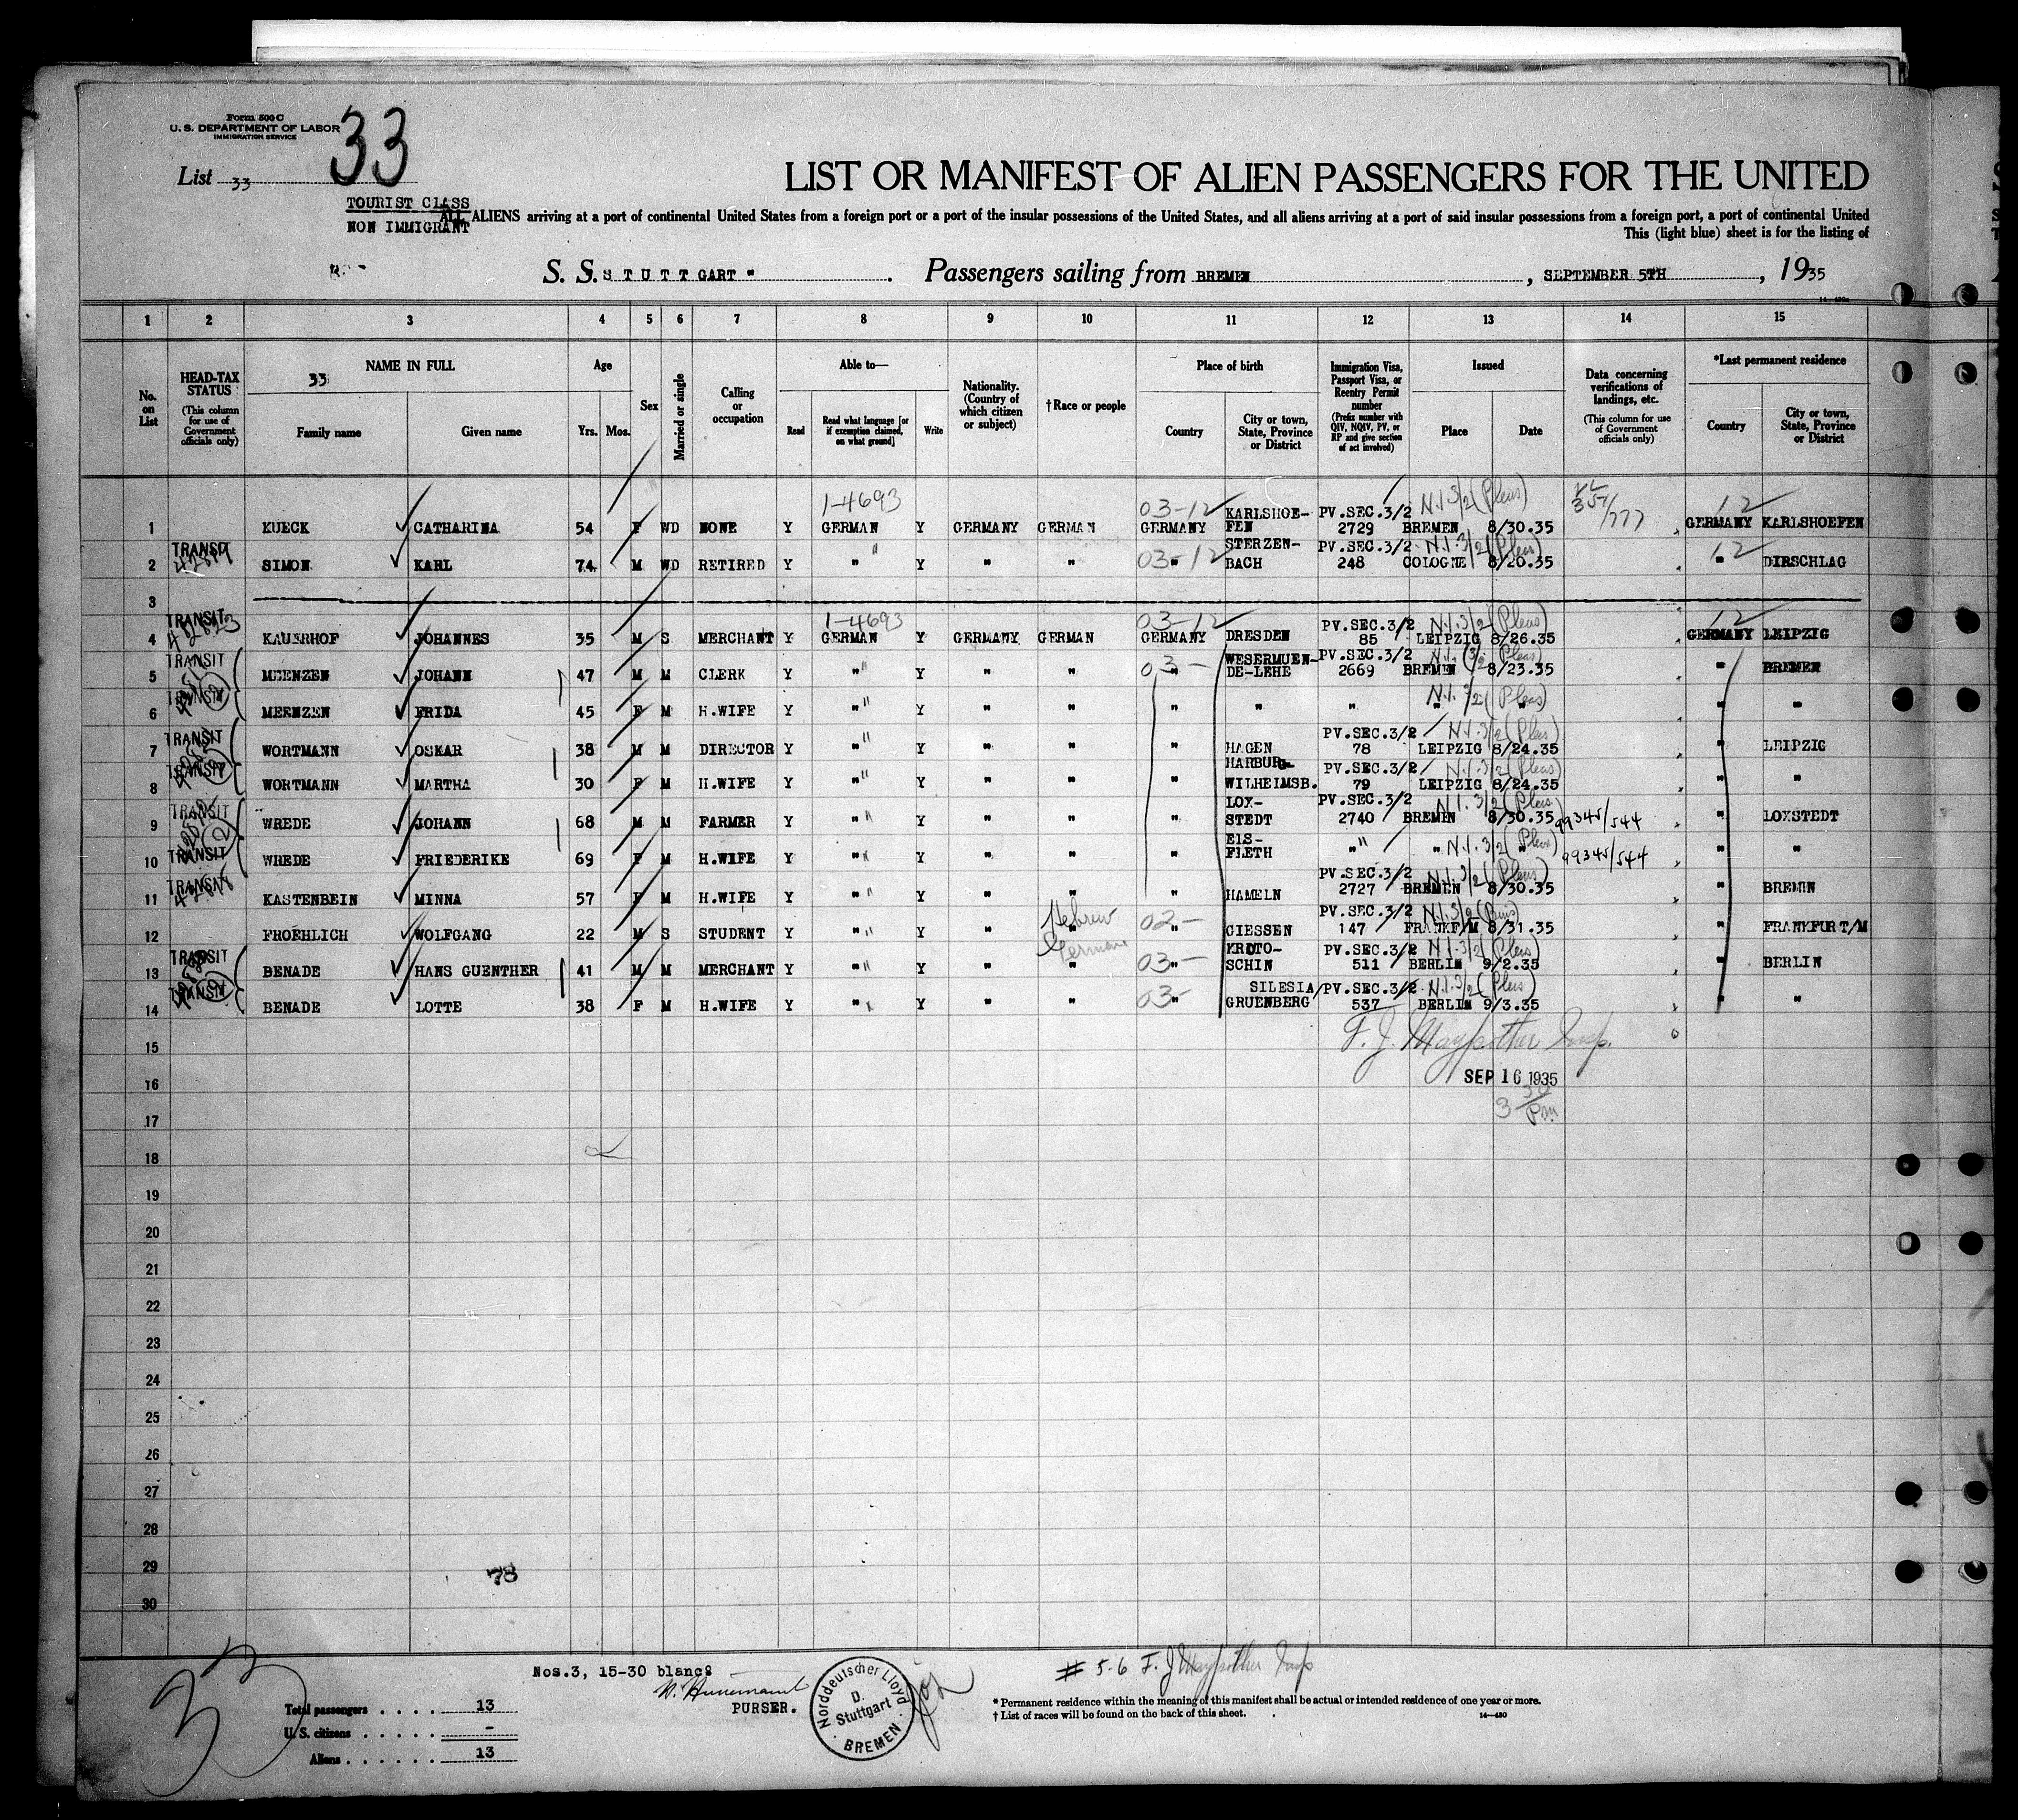 Form 500 C
U. S. DEPARTMENT OF LABOR
IMMIGRATION SERVICE
33
List 33
TOURIST CLASS
NON IMMIGRANT
LIST OR MANIFEST OF ALIEN PASSENGERS FOR THE UNITED
ALL ALIENS arriving at a port of continental United States from a foreign port or a port of the insular possessions of the United States, and all aliens arriving at a port of said insular possessions from a foreign port, a port of continental United
This (light blue) sheet is for the listing of
S. S. STUTTGART " . Passengers sailing from BREMEN , SEPTEMBER 5TH , 1935
1 2 3 4 5 6 7 8 9 10 11 12 13 14 15
No. on List
HEAD-TAX STATUS (This column for use of Government officials only)
NAME IN FULL 33 Family name Given name
Age Yrs. Mos.
Sex
Married or single
Calling or occupation
Able to— Read Read what language [or if exemption claimed, on what ground] Write
Nationality. (Country of which citizen or subject)
†Race or people
Place of birth Country City or town, State, Province or District
Immigration Visa, Passport Visa, or Reentry Permit number (Prefix number with QIV, NQIV, PV, or RP and give section of act involved)
Issued Place Date
Data concerning verifications of landings, etc. (This column for use of Government officials only)
*Last permanent residence Country City or town, State, Province or District
1-4693 03-12 KARLSHOE- PV.SEC.3/2 N.I.3/2 (Pleas) 12
1 KUECK CATHARINA 54 F WD NONE Y GERMAN Y GERMANY GERMAN GERMANY FEN 2729 BREMEN 8/30.35 GERMANY KARLSHOEFEN
TRANSIT STERZEN- PV.SEC.3/2 N.I.3/2 (Pleas) 12
2 SIMON KARL 74 M WD RETIRED Y " Y " " 03-12 " BACH 248 COLOGNE 8/20.35 " DIRSCHLAG
3
TRANSIT 1-4693 03-12 PV.SEC.3/2 N.I.3/2 (Pleas) 12
4 KAUERHOF JOHANNES 35 M S MERCHANT Y GERMAN Y GERMANY GERMAN GERMANY DRESDEN 85 LEIPZIG 8/26.35 GERMANY LEIPZIG
TRANSIT WESERMUEN- PV.SEC.3/2 N.I.3/2 (Pleas)
5 MEENZEN JOHANN 47 M M CLERK Y " Y " " 03- " DE-LEHE 2669 BREMEN 8/23.35 " BREMEN
TRANSIT N.I.3/2 (Pleas)
6 MEENZEN FRIDA 45 F M H.WIFE Y " Y " " " " " " " " "
TRANSIT PV.SEC.3/2 N.I.3/2 (Pleas)
7 WORTMANN OSKAR 38 M M DIRECTOR Y " Y " " " HAGEN 78 LEIPZIG 8/24.35 " LEIPZIG
TRANSIT HARBURG- PV.SEC.3/2 N.I.3/2 (Pleas)
8 WORTMANN MARTHA 30 F M H.WIFE Y " Y " " " WILHELMSB. 79 LEIPZIG 8/24.35 " "
TRANSIT LOX- PV.SEC.3/2 N.I.3/2 (Pleas)
9 WREDE JOHANN 68 M M FARMER Y " Y " " " STEDT 2740 BREMEN 8/30.35 99345/544 " LOXSTEDT
TRANSIT ELS- N.I.3/2 (Pleas)
10 WREDE FRIEDERIKE 69 F M H.WIFE Y " Y " " " FLETH " " " 99345/544 " "
TRANSIT PV.SEC.3/2 N.I.3/2 (Pleas)
11 KASTENBEIN MINNA 57 F M H.WIFE Y " Y " " " HAMELN 2727 BREMEN 8/30.35 " BREMEN
Hebrew 02- PV.SEC.3/2 N.I.3/2 (Pleas)
12 FROEHLICH WOLFGANG 22 M S STUDENT Y " Y " " " GIESSEN 147 FRANKF/M 8/31.35 " FRANKFURT/M
TRANSIT German KROTO- PV.SEC.3/2 N.I.3/2 (Pleas)
13 BENADE HANS GUENTHER 41 M M MERCHANT Y " Y " " 03- " SCHIN 511 BERLIN 9/2.35 " BERLIN
TRANSIT SILESIA/ PV.SEC.3/2 N.I.3/2 (Pleas)
14 BENADE LOTTE 38 F M H.WIFE Y " Y " " 03- " GRUENBERG 537 BERLIN 9/3.35 " "
15
F. J. Maypother Insp.
16
SEP 16 1935
3 30 Pm
17
18
19
20
21
22
23
24
25
26
27
28
29
78
30
33
Nos.3, 15-30 blancs
PURSER.
Norddeutscher Lloyd
D. Stuttgart
BREMEN
# 5-6 F. J Maypother Insp
Total passengers . . . . 13
U. S. citizens . . . . . -
Aliens . . . . . . 13
* Permanent residence within the meaning of this manifest shall be actual or intended residence of one year or more.
† List of races will be found on the back of this sheet.
14—430